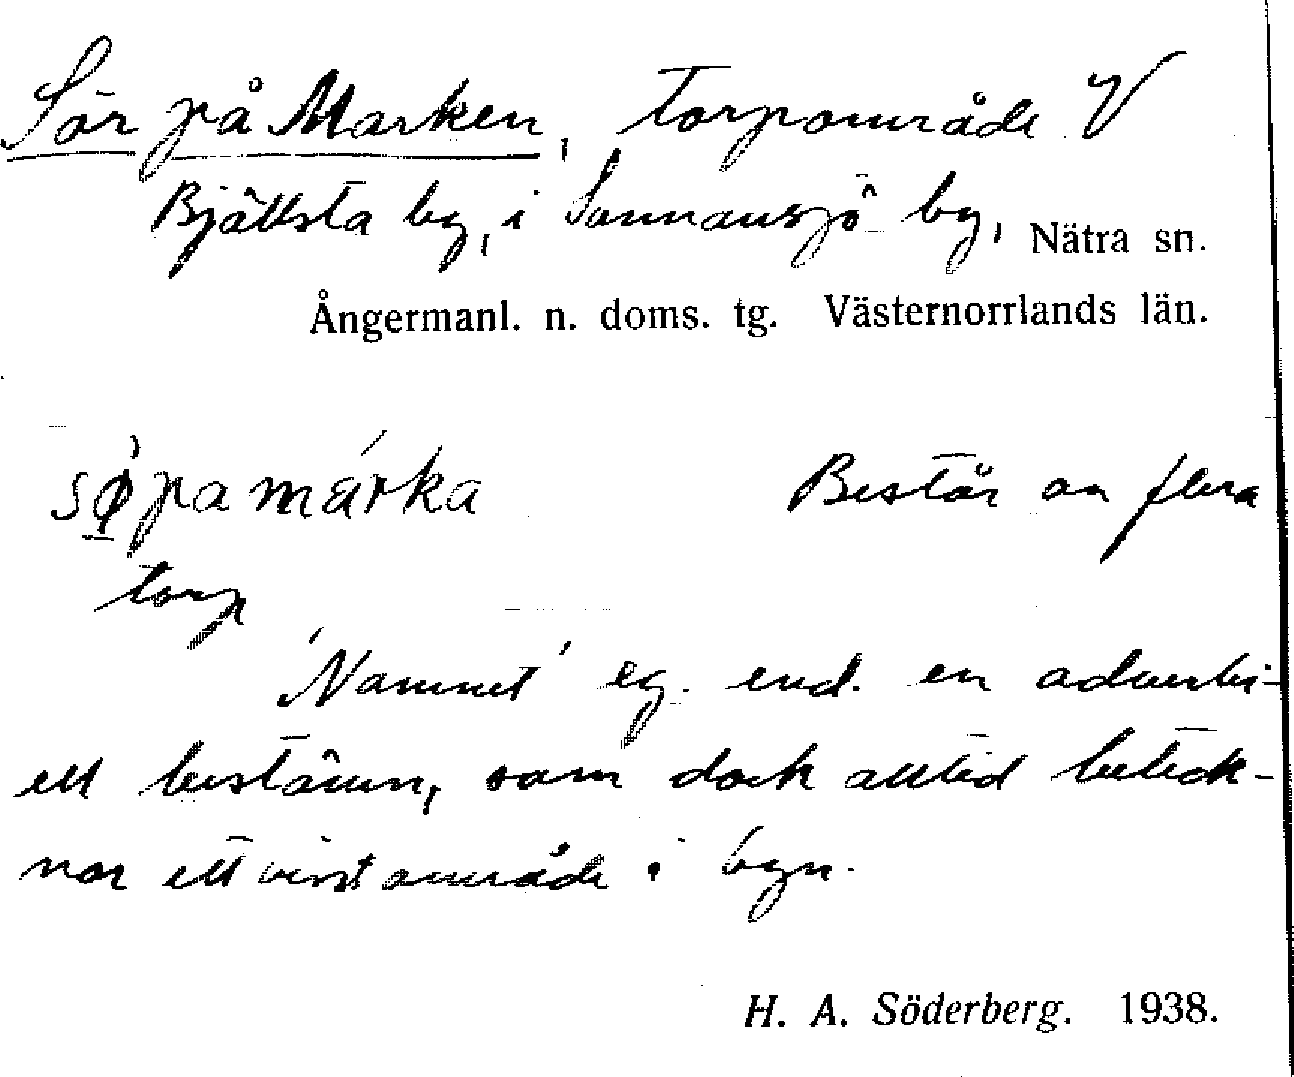 Sör på Marken, torpområde V
Bjällsta by, i Sunnansjö by, Nätra sn.
Ångermanl. n. doms. tg. Västernorrlands län.
Består av flera
torp
'Namnet' eg. end. en adverbi-
ell bestämn, som dock alltid beteck-
nar ett visst område i byn.
H. A. Söderberg. 1938.